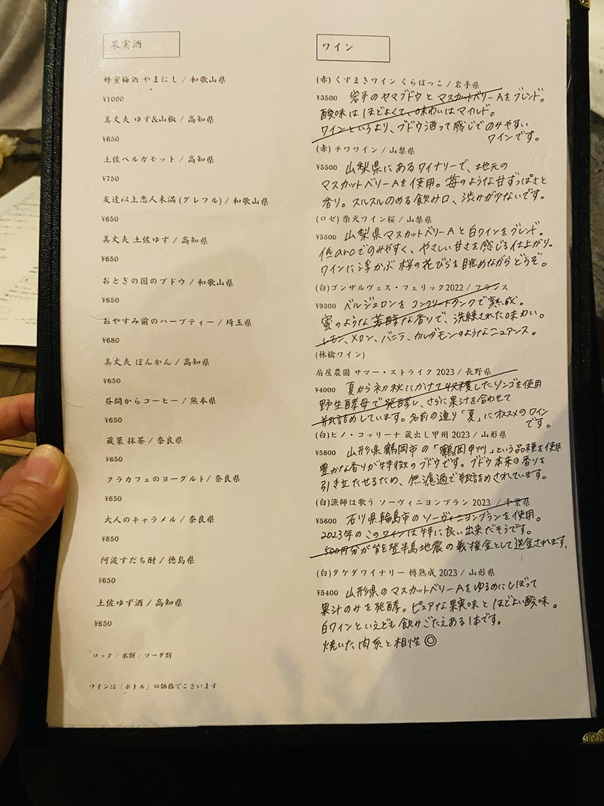 果実酒
蜂蜜梅酒 やまにし / 和歌山県
¥1000
美丈夫 ゆず&山椒 / 高知県
¥650
土佐ベルガモット / 高知県
¥750
友達以上恋人未満 (グレフル) / 和歌山県
¥650
美丈夫 土佐ゆず / 高知県
¥650
おとぎの国のブドウ / 和歌山県
¥650
おやすみ前のハーブティー / 埼玉県
¥680
美丈夫 ぽんかん / 高知県
¥650
昼間からコーヒー / 熊本県
¥650
蔵菓 抹茶 / 奈良県
¥650
クラカフェのヨーグルト / 奈良県
¥650
大人のキャラメル / 奈良県
¥650
阿波すだち酎 / 徳島県
¥650
土佐ゆず酒 / 高知県
¥650
ロック / 水割 / ソーダ割
ワインは「ボトル」の価格でございます
ワイン
(赤) くずまきワイン くらぼっこ / 岩手県
¥3500 岩手のヤマブドウとマスカットベリーAをブレンド。
酸味はほどよくて味わいはマイルド。
ワインというより、ブドウ酒って感じでのみやすい
ワインです。
(赤) チワワイン / 山梨県
¥5500 山梨県にあるワイナリーで、地元の
マスカットベリーAを使用。苺のような甘ずっぱさと
香り。スルスルのめる飲み口、渋みが少ないです。
(ロゼ) 柴犬ワイン桜 / 山梨県
¥5500 山梨県マスカットベリーAと白ワインをブレンド。
低alcでのみやすく、やさしい甘さを感じる仕上がり。
ワインに浮かぶ桜の花びらを眺めながらどうぞ。
(白) ゴンザルヴェス・フェリック2022 / フランス
¥9300 ベルジュロンをコンクリートタンクで熟成。
蜜のような芳醇な香りで、洗練された味わい。
レモン、メロン、バニラ、カルダモンのようなニュアンス。
(林檎ワイン)
扇屋農園 サマー・ストライク 2023 / 長野県
¥4000 夏から初秋にかけて収穫したリンゴを使用
野生酵母で発酵し、さらに果汁を合わせて
瓶詰めしています。名前の通り「夏」にオススメのワイン
です。
(白) ピノ・コッリーナ 蔵出し甲州 2023 / 山形県
¥5800 山形県鶴岡市の「鶴岡甲州」という品種を使用
豊かな香りが特徴のブドウです。ブドウ本来の香りを
引き立たせるため、無濾過で瓶詰めされています。
(白) 漁師は歌う ソーヴィニヨンブラン 2023 / 千葉県
¥5600 石川県輪島市のソーヴィニヨンブランを使用。
2023年のこのワインは特に良い出来だそうです。
500円分が能登半島地震の義援金として送金されます。
(白) タケダワイナリー 樽熟成 2023 / 山形県
¥5400 山形県のマスカットベリーAをゆるめにしぼって
果汁のみを発酵。ピュアな果実味とほどよい酸味。
白ワインといえども飲みごたえある1本です。
焼いた肉系と相性◎